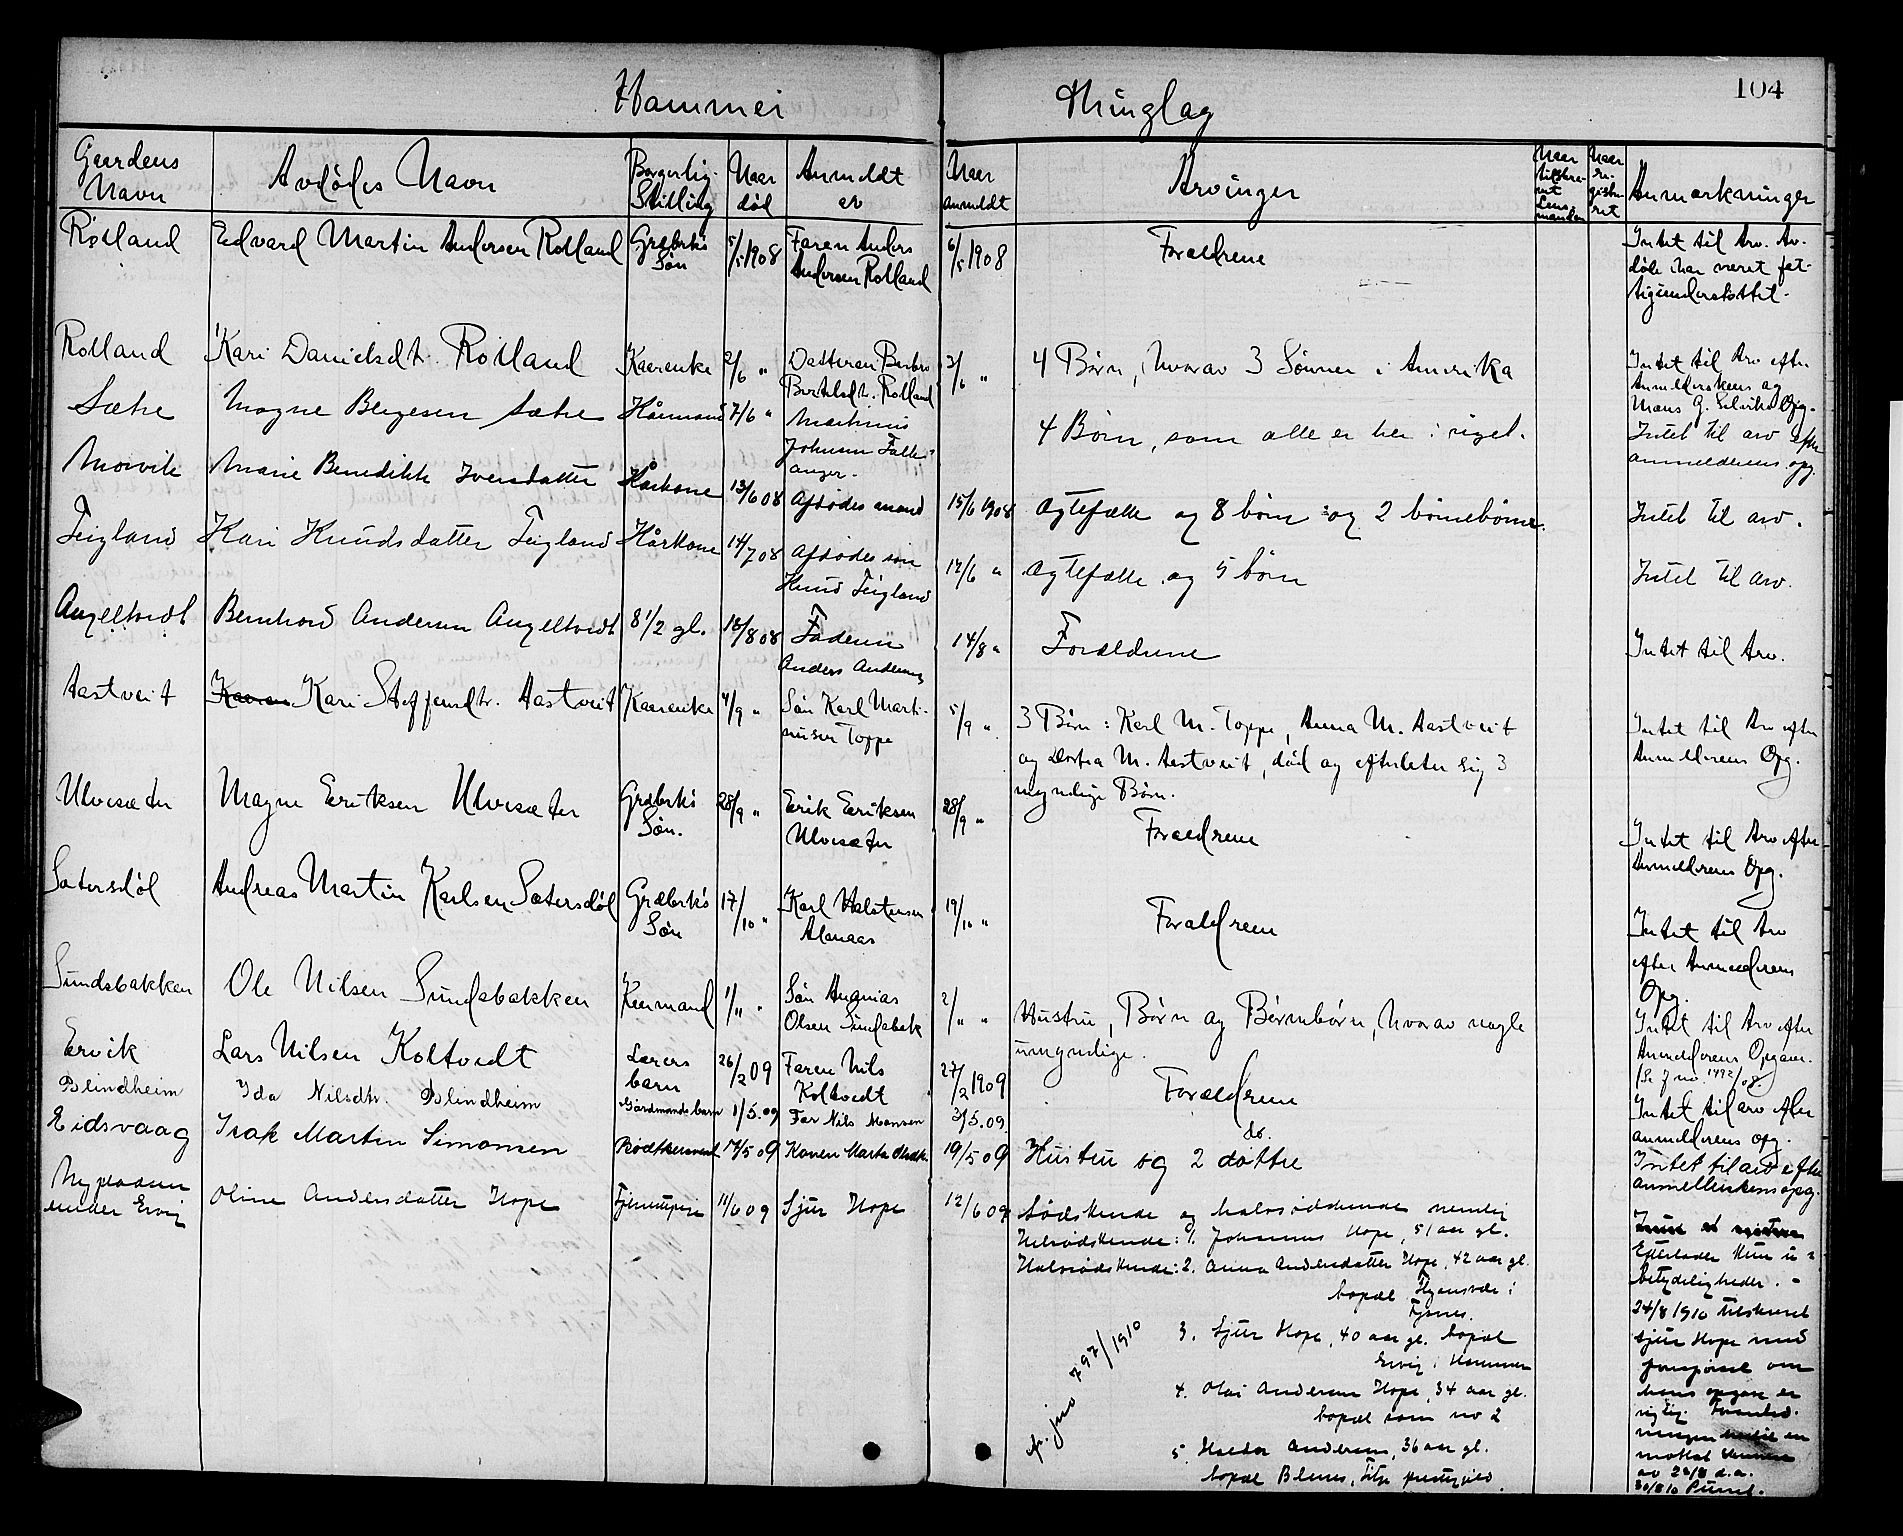 Hammer Thinglag 104
Gaardens Navn | Avdødes Navn | Borgerlig Stilling | Naar død | Anmeldt av | Naar anmeldt | Arvinger | Naar tilskrevet Lensmanden | Naar registreret | Anmærkninger
Rolland | Edvard Martin Andersen Rolland | Grdbrks Søn | 5/5 1908 | Faren Anders Andersen Rolland | 6/5 1908 | Forældrene | Intet til Arv. Avdøde har været fattigunderstøttet.
Rolland | Kari Danielsdt. Rolland | Kaarenke | 2/6 " | Datteren Berbro Bertelsdt. Rolland | 3/6 " | 4 Børn, hvorav 3 Sønner i Amerika | Intet til Arv efter Anmelderskens og Mons G. Selviks Opg.
Sætre | Mogne Bergesen Sætre | Kårmand | 7/6 " | Martinus Johnsen Salhusanger | 4 Børn, som alle er her i riget. | Intet til arv efter anmelderens opg.
Morvik | Marie Benedikte Iversdatter | Kårkone | 13/6 08 | Afdødes mand | 15/6 1908 | Ægtefælle og 8 børn og 2 børnebørn. | Intet til arv.
Teigland | Kari Knudsdatter Teigland | Kårkone | 14/7 08 | Afdødes søn Knud Teigland | 17/6 " | Ægtefælle og 5 børn | Intet til arv.
Angeltvedt | Bernhard Andersen Angeltvedt | 8 1/2 gl. | 13/8 08 | Faderen Anders Andersen | 14/8 " | Forældrene | Intet til Arv.
Aastveit | Kari Steffensdtr. Aastveit | Kaarenke | 4/9 " | Søn Karl Martinusen Toppe | 5/9 " | 3 Børn: Karl M. Toppe, Anna M. Aastveit
og Dortea M. Aastveit, død og efterlater sig 3
myndige Børn. | Intet til Arv efter Anmelderens Opg.
Ulvesæter | Magne Eriksen Ulvesæter | Grdbrks Søn. | 28/9 " | Erik Eriksen Ulvesæter | 28/9 " | Forældrene | Intet til Arv efter Anmelderens Opg.
Sætersdøl | Andreas Martin Karlsen Sætersdøl | Grdbrks Søn | 17/10 " | Karl Halstensen Alanaas | 19/10 " | Forældrene | Intet til Arv efter Anmelderens Opg.
Sundsbakken | Ole Nilsen Sundsbakken | Kaarmand | 1/11 " | Søn Ananias Olsen Sundsbak | 2/" " | Hustru, Børn og Børnebørn, hvorav nogle
umyndige. | Intet til Arv efter Anmelderens Opgave. (Se J no. 1492/08)
Ervik | Lars Nilsen Koltvedt | Lærers barn | 26/2 09 | Faren Nils Koltvedt | 27/2 1909 | Forældrene | Intet til arv efter anmelderens opg.
Blindheim | Ida Nilsdtr. Blindheim | Gårdmandsbarn | 1/5.09 | Far Nils Monsen | 3/5.09. | do.
Eidsvaag | Isak Martin Simonsen | Bødtkersvend | 17/5 09 | Konen Marta | 19/5 09 | Hustru og 2 døttre | Intet til arv efter anmelderskens opg.
Nyplassen under Ervig | Oline Andersdatter Hope | Tjenestepige | 11/6 09 | Sjur Hope | 12/6 09 | Sødskende og halvsødskende nemlig
Helsødskende: 1. Johannes Hope, 51 aar gl.
Halvsødskende: 2. Anna Andersdatter Hope, 42 aar gl.
bopæl i
Fjøsnes.
3. Sjur Hope, 40 aar gl. bopæl
Ervig i Hammer
4. Olai Andersen Hope, 34 aar gl.
bopæl som no 2
5. Haldor Andersen, 36 aar gl.
bopæl
jno 797/1910
Efterlader kun ubetydeligheder. -
24/8 1910 tilskrevet
Sjur Hope med
forespørsel om
hans opgave er
rigtig.
av 24/8 d.a.
30/8 10